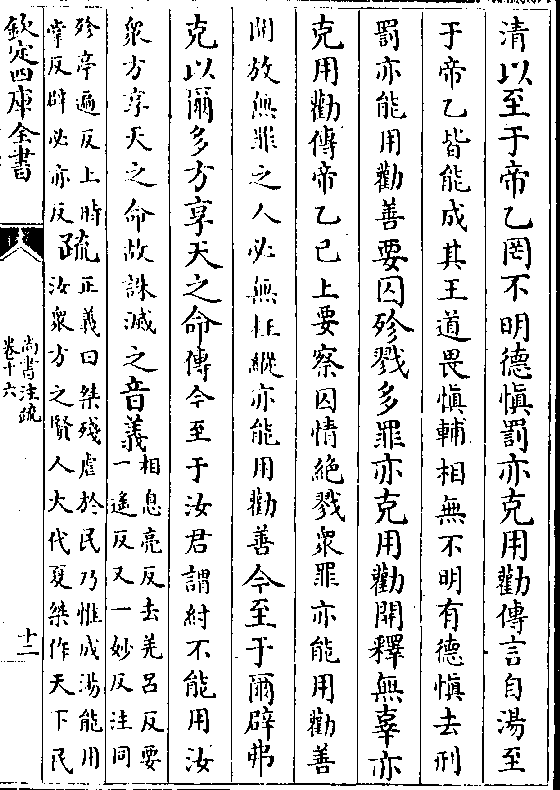 清以至于帝乙罔不明德慎罰亦克用勸傳言自湯至
于帝乙皆能成其王道畏慎輔相無不明有德慎去刑
罰亦能用勸善要囚殄戮多罪亦克用勸開釋無辜亦
克用勸傳帝乙已上要察囚情絶戮衆罪亦能用勸善
開放無罪之人必無枉縱亦能用勸善今至于爾辟弗
克以爾多方享天之命傳今至于汝君謂紂不能用汝
衆方享天之命故誅滅之音義
相息亮反去羌吕反要
一遥反又一妙反注同
殄亭遍反上時
掌反辟必亦反
疏
正義曰桀殘虐於民乃惟成湯能用
汝衆方之賢人大代夏桀作天下民
欽定四庫全書
尚書注疏
卷十六
十二